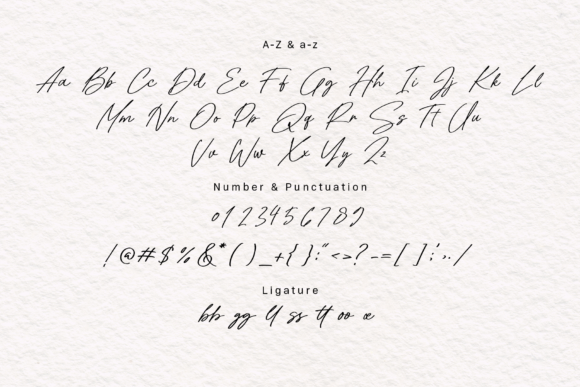 A-Z & a-z
Aa Bb Cc Dd Ee Ff Gg Hh Ii Jj Kk Ll
Mm Nn Oo Pp Qq Rr Ss Tt Uu
Vv Ww Xx Yy Zz
Number & Punctuation
0123456789
!@#$%&*()_+{}:"<>?-=[];',./
Ligature
bb gg ll ss tt oo œ